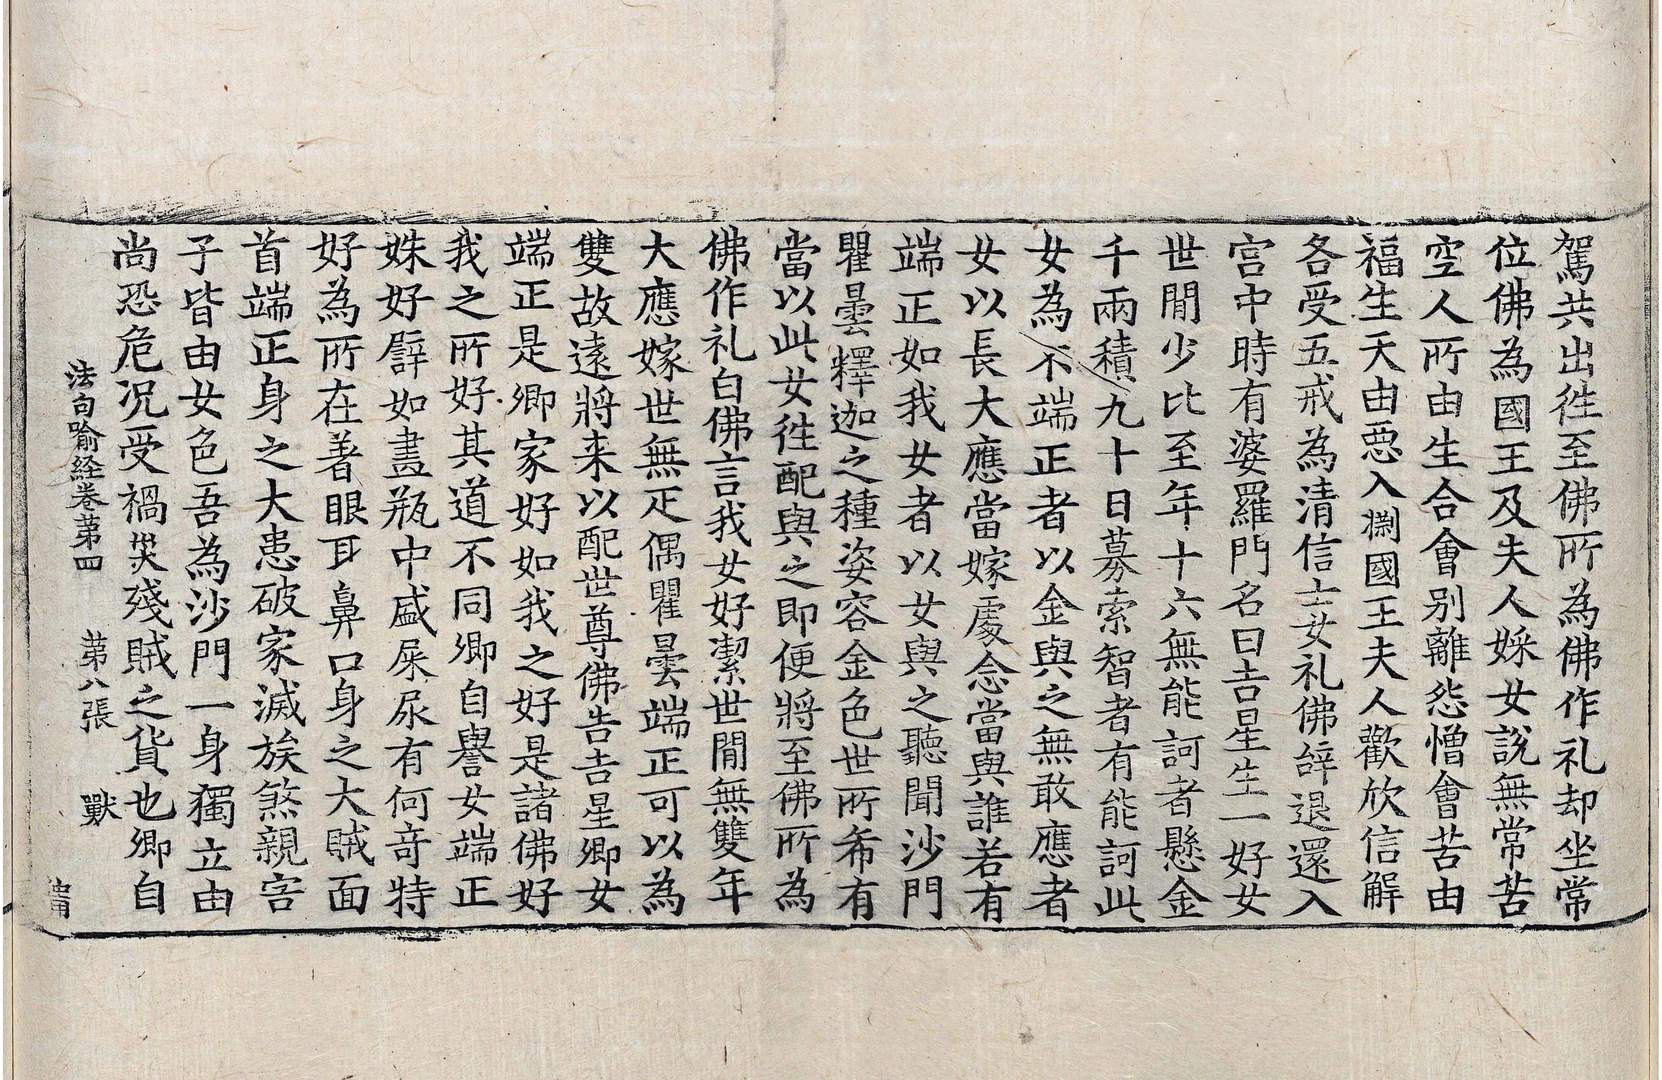 駕共出徃至佛所為佛作礼却坐常
位佛為國王及夫人婇女說無常苦
空人所由生合會别離怨憎會苦由
福生天由惡入捌國王夫人歡欣信解
各受五戒為清信士女礼佛辝退還入
宫中時有婆羅門名曰吉星生一好女
世閒少比至年十六無能訶者懸金
千兩積九十日募索智者有能訶此
女為不端正者以金與之無敢應者
女以長大應當嫁處念當與誰若有
端正如我女者以女與之聽聞沙門
瞿曇釋迦之種姿容金色世所希有
當以此女徃配與之即便將至佛所為
佛作礼白佛言我女好潔世閒無雙年
大應嫁世無疋偶瞿曇端正可以為
雙故遠將来以配世尊佛告吉星卿女
端正是卿家好如我之好是諸佛好
我之所好其道不同卿自譽女端正
姝好譬如畫瓶中盛屎尿有何竒特
好為所在著眼耳鼻口身之大賊面
首端正身之大患破家滅族煞親害
子皆由女色吾為沙門一身獨立由
尚恐危况受禍灾殘賊之貨也卿自
法句喻経卷苐四　苐八張　獸